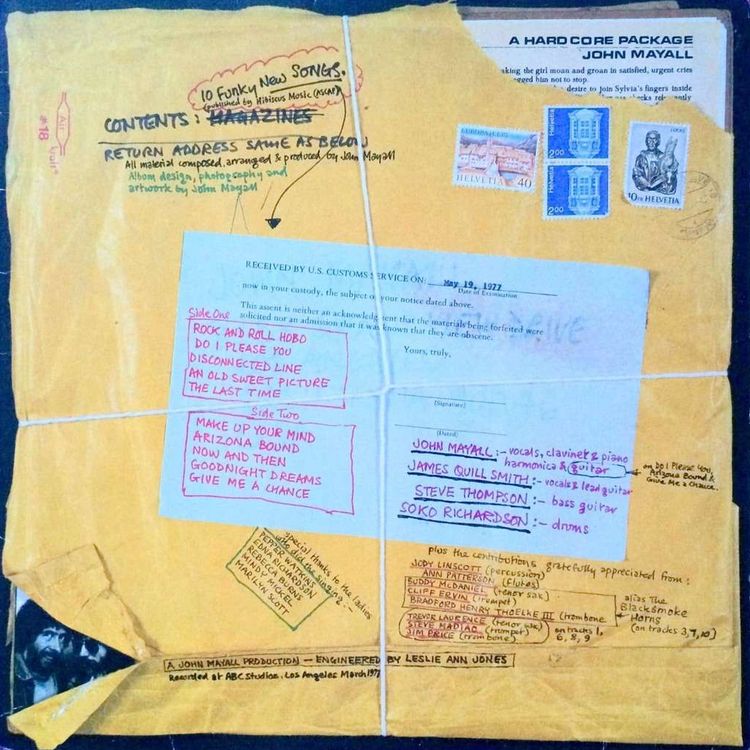 A HARD CORE PACKAGE
JOHN MAYALL
king the girl moan and groan in satisfied, urgent cries
gged him not to stop.
desire to join Sylvia's fingers inside
10 FUNKY NEW SONGS.
(published by Hibiscus Music (ASCAP)
CONTENTS: MAGAZINES
RETURN ADDRESS SAME AS BELOW
All material composed, arranged & produced by John Mayall
Album design, photography and
artwork by John Mayall
Air
EUROPA
HELVETIA 40
Helvetia
200
Helvetia
200
10 FR HELVETIA
RECEIVED BY U.S. CUSTOMS SERVICE ON: May 19, 1977
Date of Examination
now in your custody, the subject of your notice dated above.
This assent is neither an acknowledgment that the materials being forfeited were
solicited nor an admission that it was known that they are obscene.
Yours, truly,
(Signature)
(Dated)
Side One
ROCK AND ROLL HOBO
DO I PLEASE YOU
DISCONNECTED LINE
AN OLD SWEET PICTURE
THE LAST TIME
Side Two
MAKE UP YOUR MIND
ARIZONA BOUND
NOW AND THEN
GOODNIGHT DREAMS
GIVE ME A CHANCE
JOHN MAYALL :- vocals, clavinet & piano
harmonica & guitar
on Do I Please You,
Arizona Bound &
Give Me a Chance.
JAMES QUILL SMITH :- vocals & lead guitar
STEVE THOMPSON :- bass guitar
SOKO RICHARDSON :- drums
special thanks to the ladies
who did the singing :-
PEPPER WATKINS
EDNA RICHARDSON
REBECCA BURNS
MINDY MICKEL
MARILYN SCOTT
plus the contributions gratefully appreciated from:
JODY LINSCOTT (percussion)
ANN PATTERSON (flutes)
BUDDY McDANIEL (tenor sax)
CLIFF ERVIN (trumpet)
BRADFORD HENRY THOELKE III (trombone
alias The
Blacksmoke
Horns
(on tracks 3, 7, 10)
TREVOR LAURENCE (tenor sax)
STEVE MADIAO (trumpet)
JIM PRICE (trombone)
on tracks 1,
6, 8, 9
A JOHN MAYALL PRODUCTION — ENGINEERED BY LESLIE ANN JONES
Recorded at ABC Studios. Los Angeles March 1977